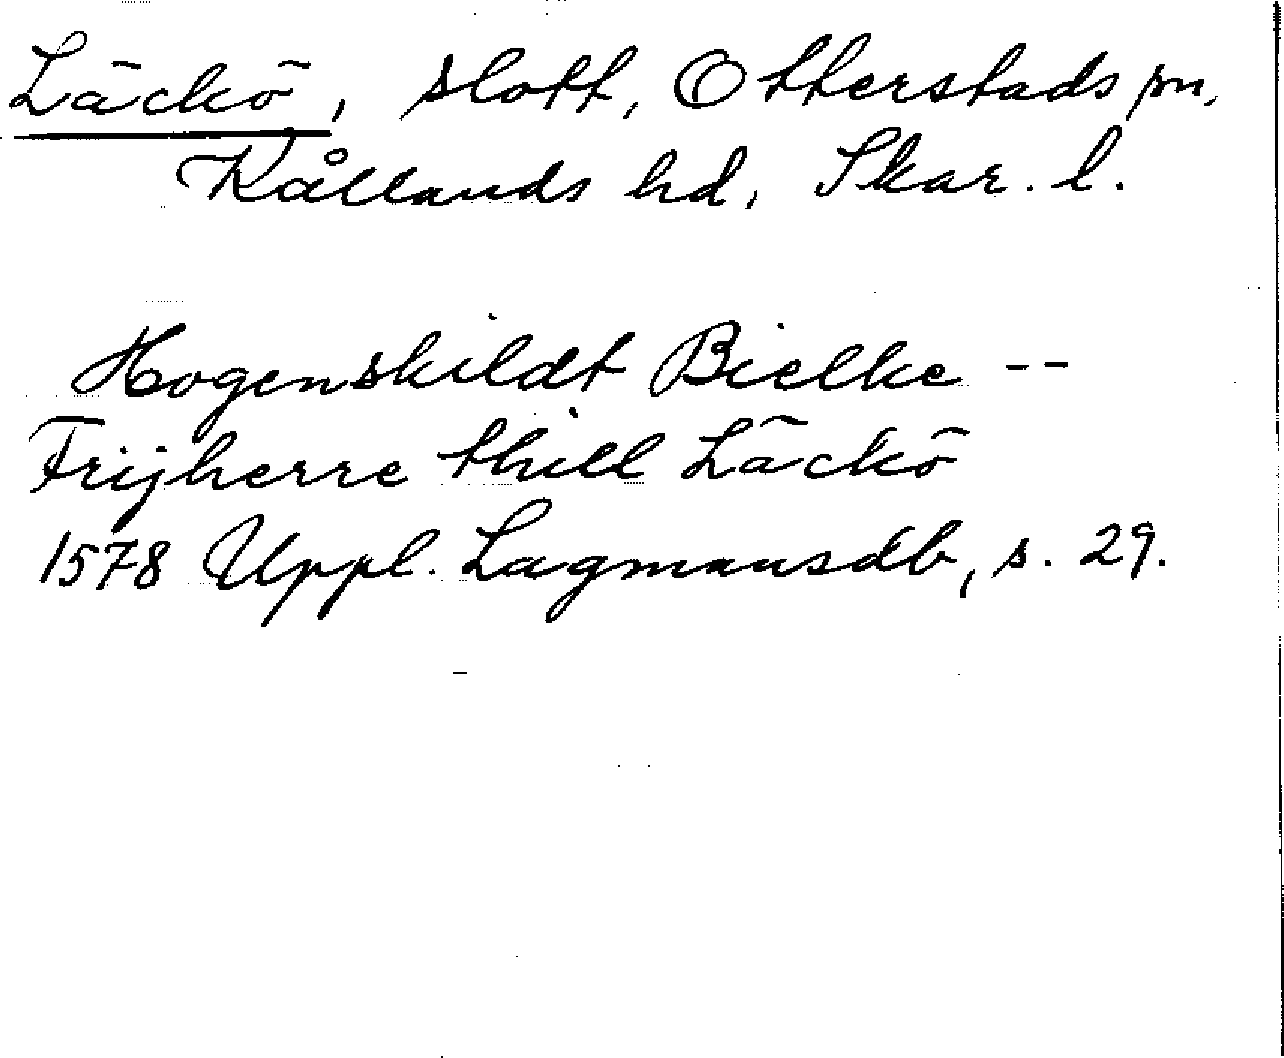 Läckö, slott, Otterstads sn,
Kållands hd, Skar. l.
Hogenskildt Bielke --
Frijherre thill Läckö
1578 Uppl. Lagmansdb, s. 29.